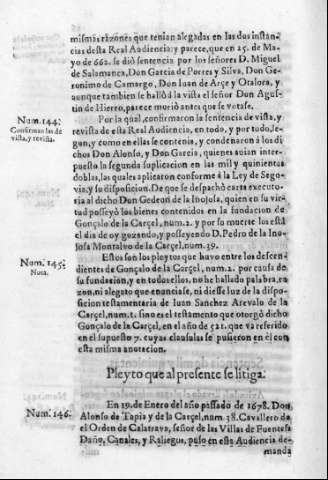 mismas razones que tenian alegadas en las dos instan-
cias desta Real Audiencia: y parece, que en 25. de Ma-
yo de 662. se diò sentencia por los señores D. Miguel
de Salamanca, Don Garcia de Porres y Silva, Don Ge-
ronimo de Camargo, Don Iuan de Arçe y Otalora, y
aunque tambien se hallò à la vista el señor Don Agus-
tin de Hierro, parece muriò antes que se votase.
Num. 144.
Confirman las de
vista, y revista.
Por la qual, confirmaron la sentencia de vista, y
revista de esta Real Audiencia, en todo, y por todo, se-
gun, y como en ellas se contenia, y condenaron à los di-
chos Don Alonso, y Don Garcia, quienes avian inter-
puesto la segunda suplicacion en las mil y quinientas
doblas, las quales aplicaron conforme à la Ley de Sego-
via, y su disposicion. De que se despachò carta executo-
ria al dicho Don Gedeon de la Inojosa, quien en su vir-
tud posseyò los bienes contenidos en la fundacion de
Gonçalo de la Carçel, num. 2. y por su muerte los està
el dia de oy gozando, y posseyendo D. Pedro de la Ino-
josa Montalvo de la Carçel, num. 39.
Num. 145.
Nota.
Estos son los pleytos que huvo entre los descen-
dientes de Gonçalo de la Carçel, num. 2. por causa de
su fundacion, y en todos ellos, no he hallado palabra, ra-
zon, ni alegato que enunciase, ni diesse luz de la dispo-
sicion testamentaria de Iuan Sanchez Arevalo de la
Carçel, num. 1. sino es el testamento que otorgò dicho
Gonçalo de la Carçel, en el año de 521. que va referido
en el supuesto 7. cuyas clausulas se pusieron en èl con
esta misma anotacion.
Pleyto que al presente se litiga.
Num. 146.
En 19. de Enero del año passado de 1678. Don
Alonso de Tapia y de la Carçel, num. 38. Cavallero de
el Orden de Calatrava, señor de las Villas de Fuentes
Daño, Canales, y Raliegus, puso en esta Audiencia de-
manda